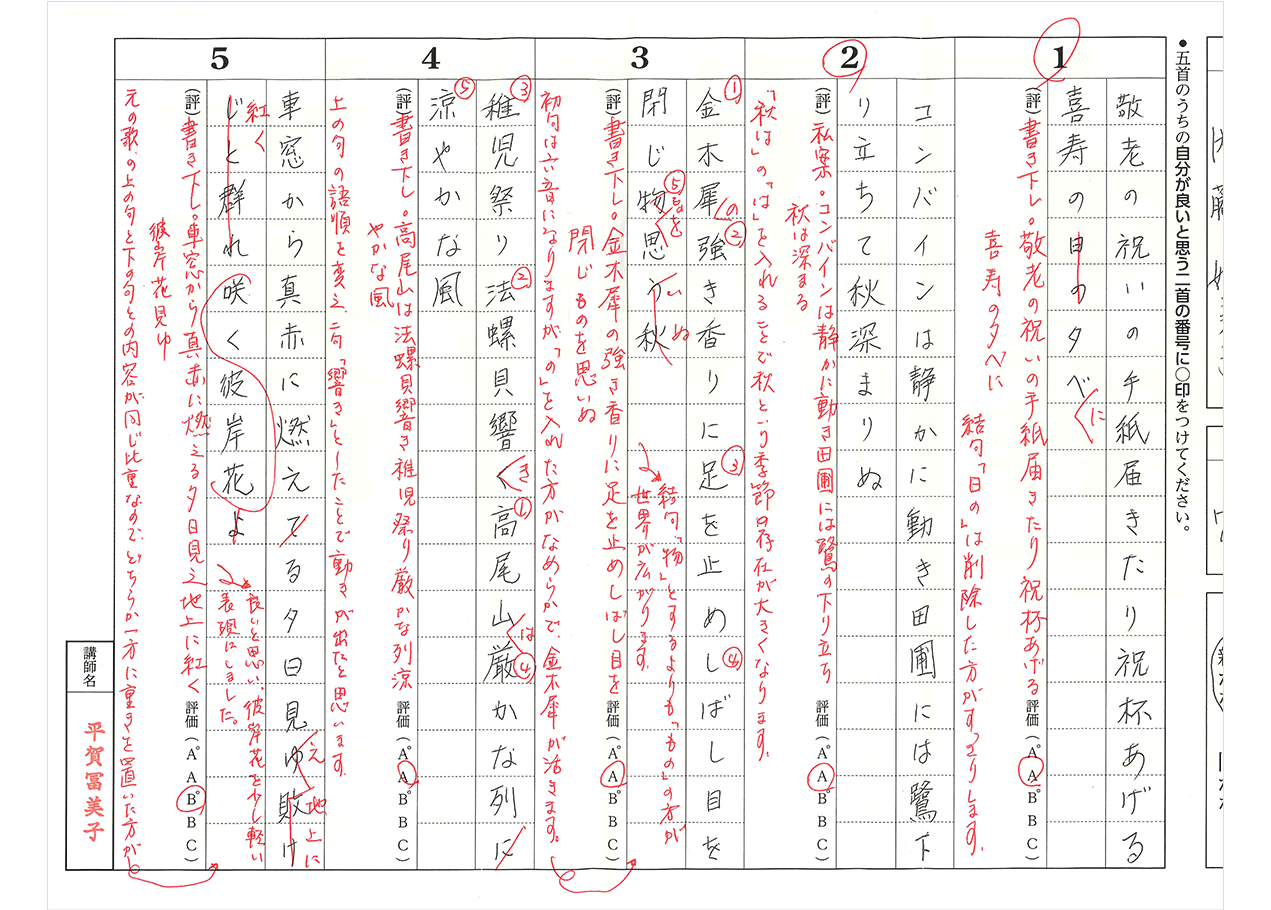 ●五首のうちの自分が良いと思う二首の番号に○印をつけてください。
1
敬老の祝いの手紙届きたり祝杯あげる
喜寿の日の夕べ
に
(評)書き下し。敬老の祝いの手紙届きたり祝杯あげる
喜寿の夕べに
結句「日の」は削除した方がすっきりします。
評価(A° A B° B C)
2
コンバインは静かに動き田圃には鷺下
り立ちて秋深まりぬ
(評)私案・コンバインは静かに動き田圃には鷺の下り立ち
秋は深まる
「秋は」の「は」を入れることで秋という季節の存在が大きくなります。
評価(A° A B° B C)
3
①金木犀②強き香りに③足を止め④しばし目を
の
閉じ⑤物思う秋
ものを
いぬ
(評)書き下し。金木犀の強き香りに足を止めしばし目を
閉じものを思いぬ
結句、「物」とするよりも「もの」の方が
世界が広がります。
初句は六音になりますが「の」を入れた方がなめらかで、金木犀が活きます。
評価(A° A B° B C)
4
③稚児祭り②法螺貝響く①高尾山④厳かな列に
き
は
⑤涼やかな風
(評)書き下し。高尾山は法螺貝響き稚児祭り厳かな列涼
やかな風
上の句の語順を変え、二句「響き」としたことで動きが出たと思います。
評価(A° A B° B C)
5
車窓から真赤に燃えてる夕日見ゆ敗け
え
地上に
じと群れ咲く彼岸花よ
紅く
(評)書き下し。車窓から真赤に燃える夕日見え地上に紅く
彼岸花見ゆ
元の歌、の上の句と下の句との内容が同じ比重なので、どちらか一方に重きを置いた方が
良いと思い、彼岸花を少し軽い
表現にしました。
評価(A° A B° B C)
講師名
平賀冨美子